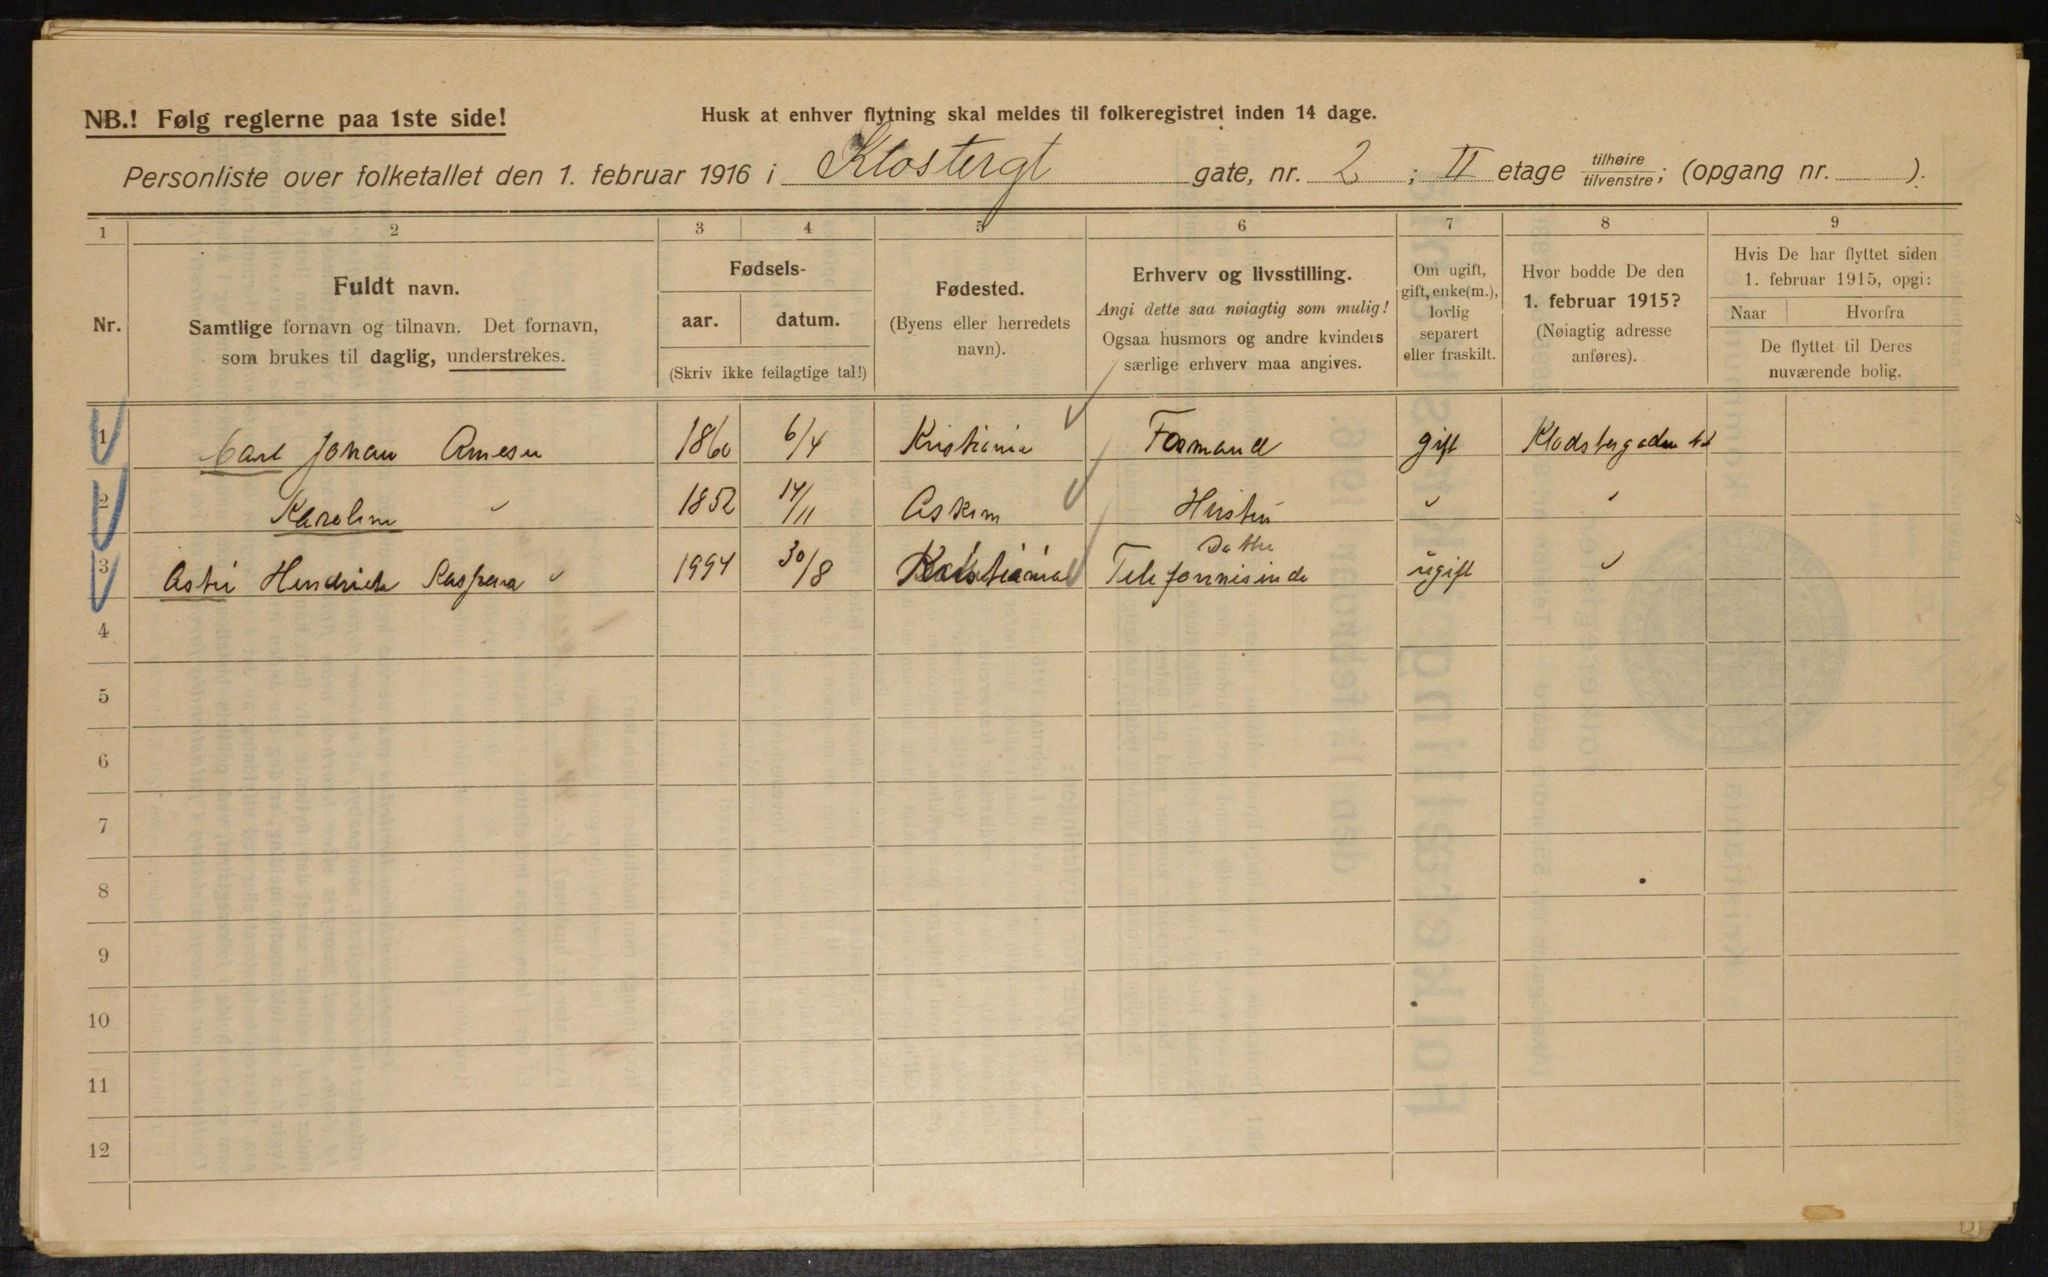 NB.! Følg reglerne paa 1ste side!
Husk at enhver flytning skal meldes til folkeregistret inden 14 dage.
Personliste over folketallet den 1. februar 1916 i Klostergt gate, nr. 2 ; II etage tilhøire/tilvenstre; (opgang nr. ).
1 2 3 4 5 6 7 8 9
Nr.
Fuldt navn.
Samtlige fornavn og tilnavn. Det fornavn,
som brukes til daglig, understrekes.
Fødsels-
aar. datum.
(Skriv ikke feilagtige tal!)
Fødested.
(Byens eller herredets
navn).
Erhverv og livsstilling.
Angi dette saa nøiagtig som mulig!
Ogsaa husmors og andre kvinders
særlige erhverv maa angives.
Om ugift,
gift, enke(m.),
lovlig
separert
eller fraskilt.
Hvor bodde De den
1. februar 1915?
(Nøiagtig adresse
anføres).
Hvis De har flyttet siden
1. februar 1915, opgi:
Naar Hvorfra
De flyttet til Deres
nuværende bolig.
1 Carl Johan Arnesen 1860 6/4 Kristiania Formand gift
2 Karoline " 1852 14/11 Askim Hustru " "
Datter
3 Hendrikke " 1994 30/8 Kristiania Telefonnistinde ugift "
4
5
6
7
8
9
10
11
12